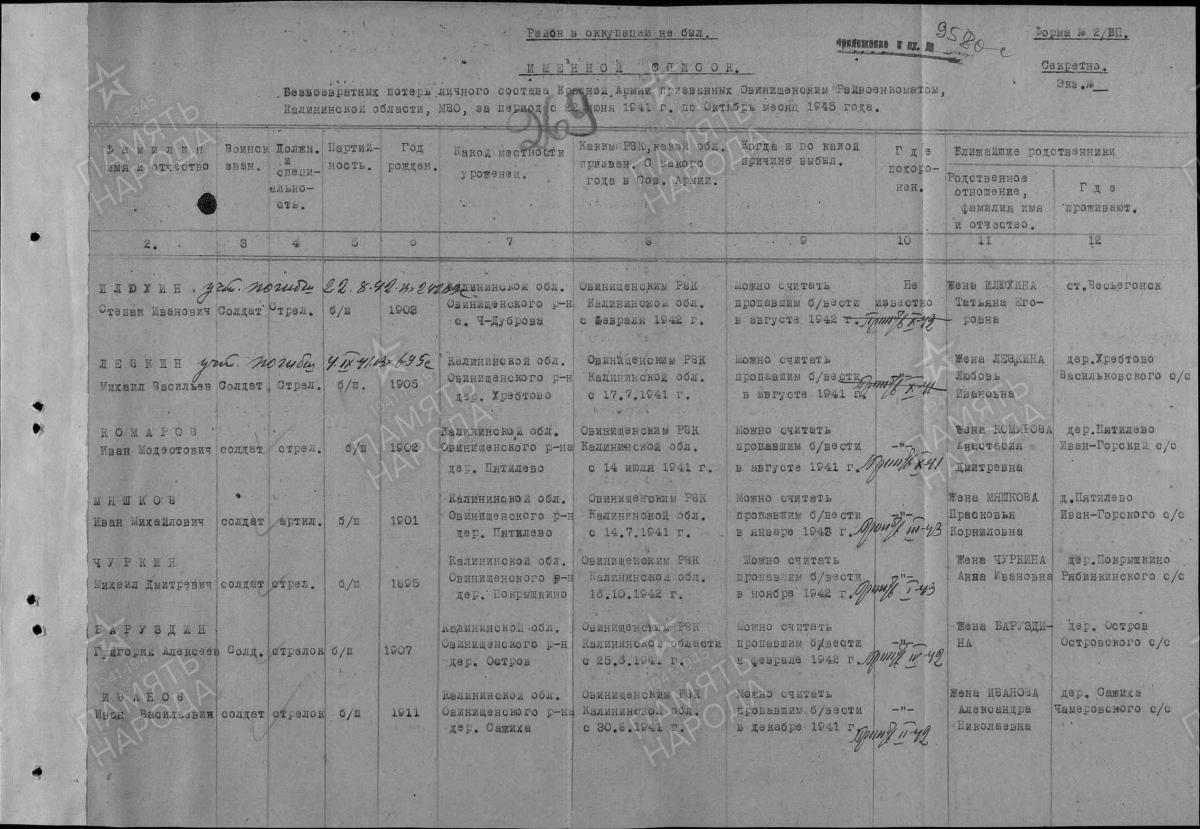 Район в оккупации не был.
приложение к вх. №
9580с
Форма № 2/БП.
ИМЕННОЙ СПИСОК.
Секретно.
Экз.№
Безвозвратных потерь личного состава Красной Армии призванных Овинищенским Райвоенкоматом,
Калининской области, МВО, за период с 22 июня 1941 г. по Октябрь месяц 1945 года.
269
Фамилия имя и отчество
Воинск зван.
Должн. и специальность.
Партийность.
Год рожден.
Какой местности уроженец.
Каким РВК, какой обл. призван. С какого года в Сов. Армии.
Когда и по какой причине выбыл.
Где похоронен.
Ближайшие родственники
Родственное отношение, фамилия имя и отчество.
Где проживают.
2. 3 4 5 6 7 8 9 10 11 12
ИЛЮХИН учт. погибш 22.8.42 Калининской обл. Овинищенским РВК Можно считать Не Жена ИЛЮХИНА ст.Весьегонск
Степан Иванович Солдат Стрел. б/п 1903 Овинищенского р-н Калининской обл. пропавшим б/вести известно Татьяна Его-
с. Ч-Дуброва с февраля 1942 г. в августе 1942 г. ровна
ЛЕВКИН учт. погибш 4.IX.41 Калининской обл. Овинищенским РВК Можно считать Жена ЛЕВКИНА дер.Хребтово
Михаил Васильев Солдат Стрел. б/п. 1905 Овинищенского р-н Калининской обл. пропавшим б/вести Любовь Васильковского с/с
дер. Хребтово с 17.7.1941 г. в августе 1941 г. Ивановна
КОМАРОВ Калининской обл. Овинищенским РВК Можно считать Жена КОМАРОВА дер.Пятилево
Иван Модестович солдат стрел. б/п 1902 Овинищенского р-на Калининской обл. пропавшим б/вести -"- Анастасия Иван-Горский с/с
дер. Пятилево с 14 июля 1941 г. в августе 1941 г. X-41 Дмитревна
МЯШКОВ Калининской обл. Овинищенским РВК Можно считать Жена МЯШКОВА д.Пятилево
Иван Михайлович солдат артил. б/п 1901 Овинищенского р-н Калининской обл. пропавшим б/вести -"- Прасковья Иван-Горского с/с
дер. Пятилево с 14.7.1941 г. в январе 1943 г. III-43 Корниловна
ЧУРКИН Калининской обл. Овинищенским РВК Можно считать Жена ЧУРКИНА дер.Покрышкино
Михаил Дмитревич солдат стрел. б/п 1895 Овинищенского р-н Калининской обл. пропавшим б/вести -"- Анна Ивановна Рябинкинского с/с
дер. Покрышкино 16.10.1942 г. в ноябре 1942 г. I-43
БАРУЗДИН Калининской обл. Овинищенским РВК Можно считать Жена БАРУЗДИ- дер. Остров
Григорий Алексеев Солд. стрелок б/п 1907 Овинищенского р-н Калининской области пропавшим б/вести -"- НА Островского с/с
дер. Остров с 25.6.1941 г. в феврале 1942 г. IV-42
ИВАНОВ Калининской обл. Овинищенским РВК Можно считать Жена ИВАНОВА дер. Сажиха
Иван Васильевич солдат стрелок б/п 1911 Овинищенского р-на Калининской обл. пропавшим б/вести -"- Александра Чамеровского с/с
дер. Сажиха с 30.6.1941 г. в декабре 1941 г. II-42 Николаевна
ПАМЯТЬ НАРОДА
1941-1945